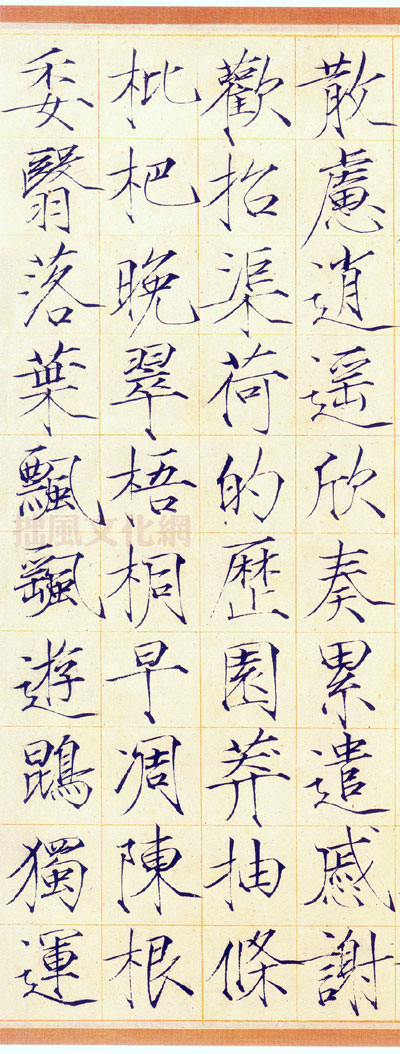 散慮逍遥欣奏累遣慼謝
歡招渠荷的歷園莽抽條
枇杷晚翠梧桐早凋陳根
委翳落葉飄颻遊鵾獨運
拙風文化網